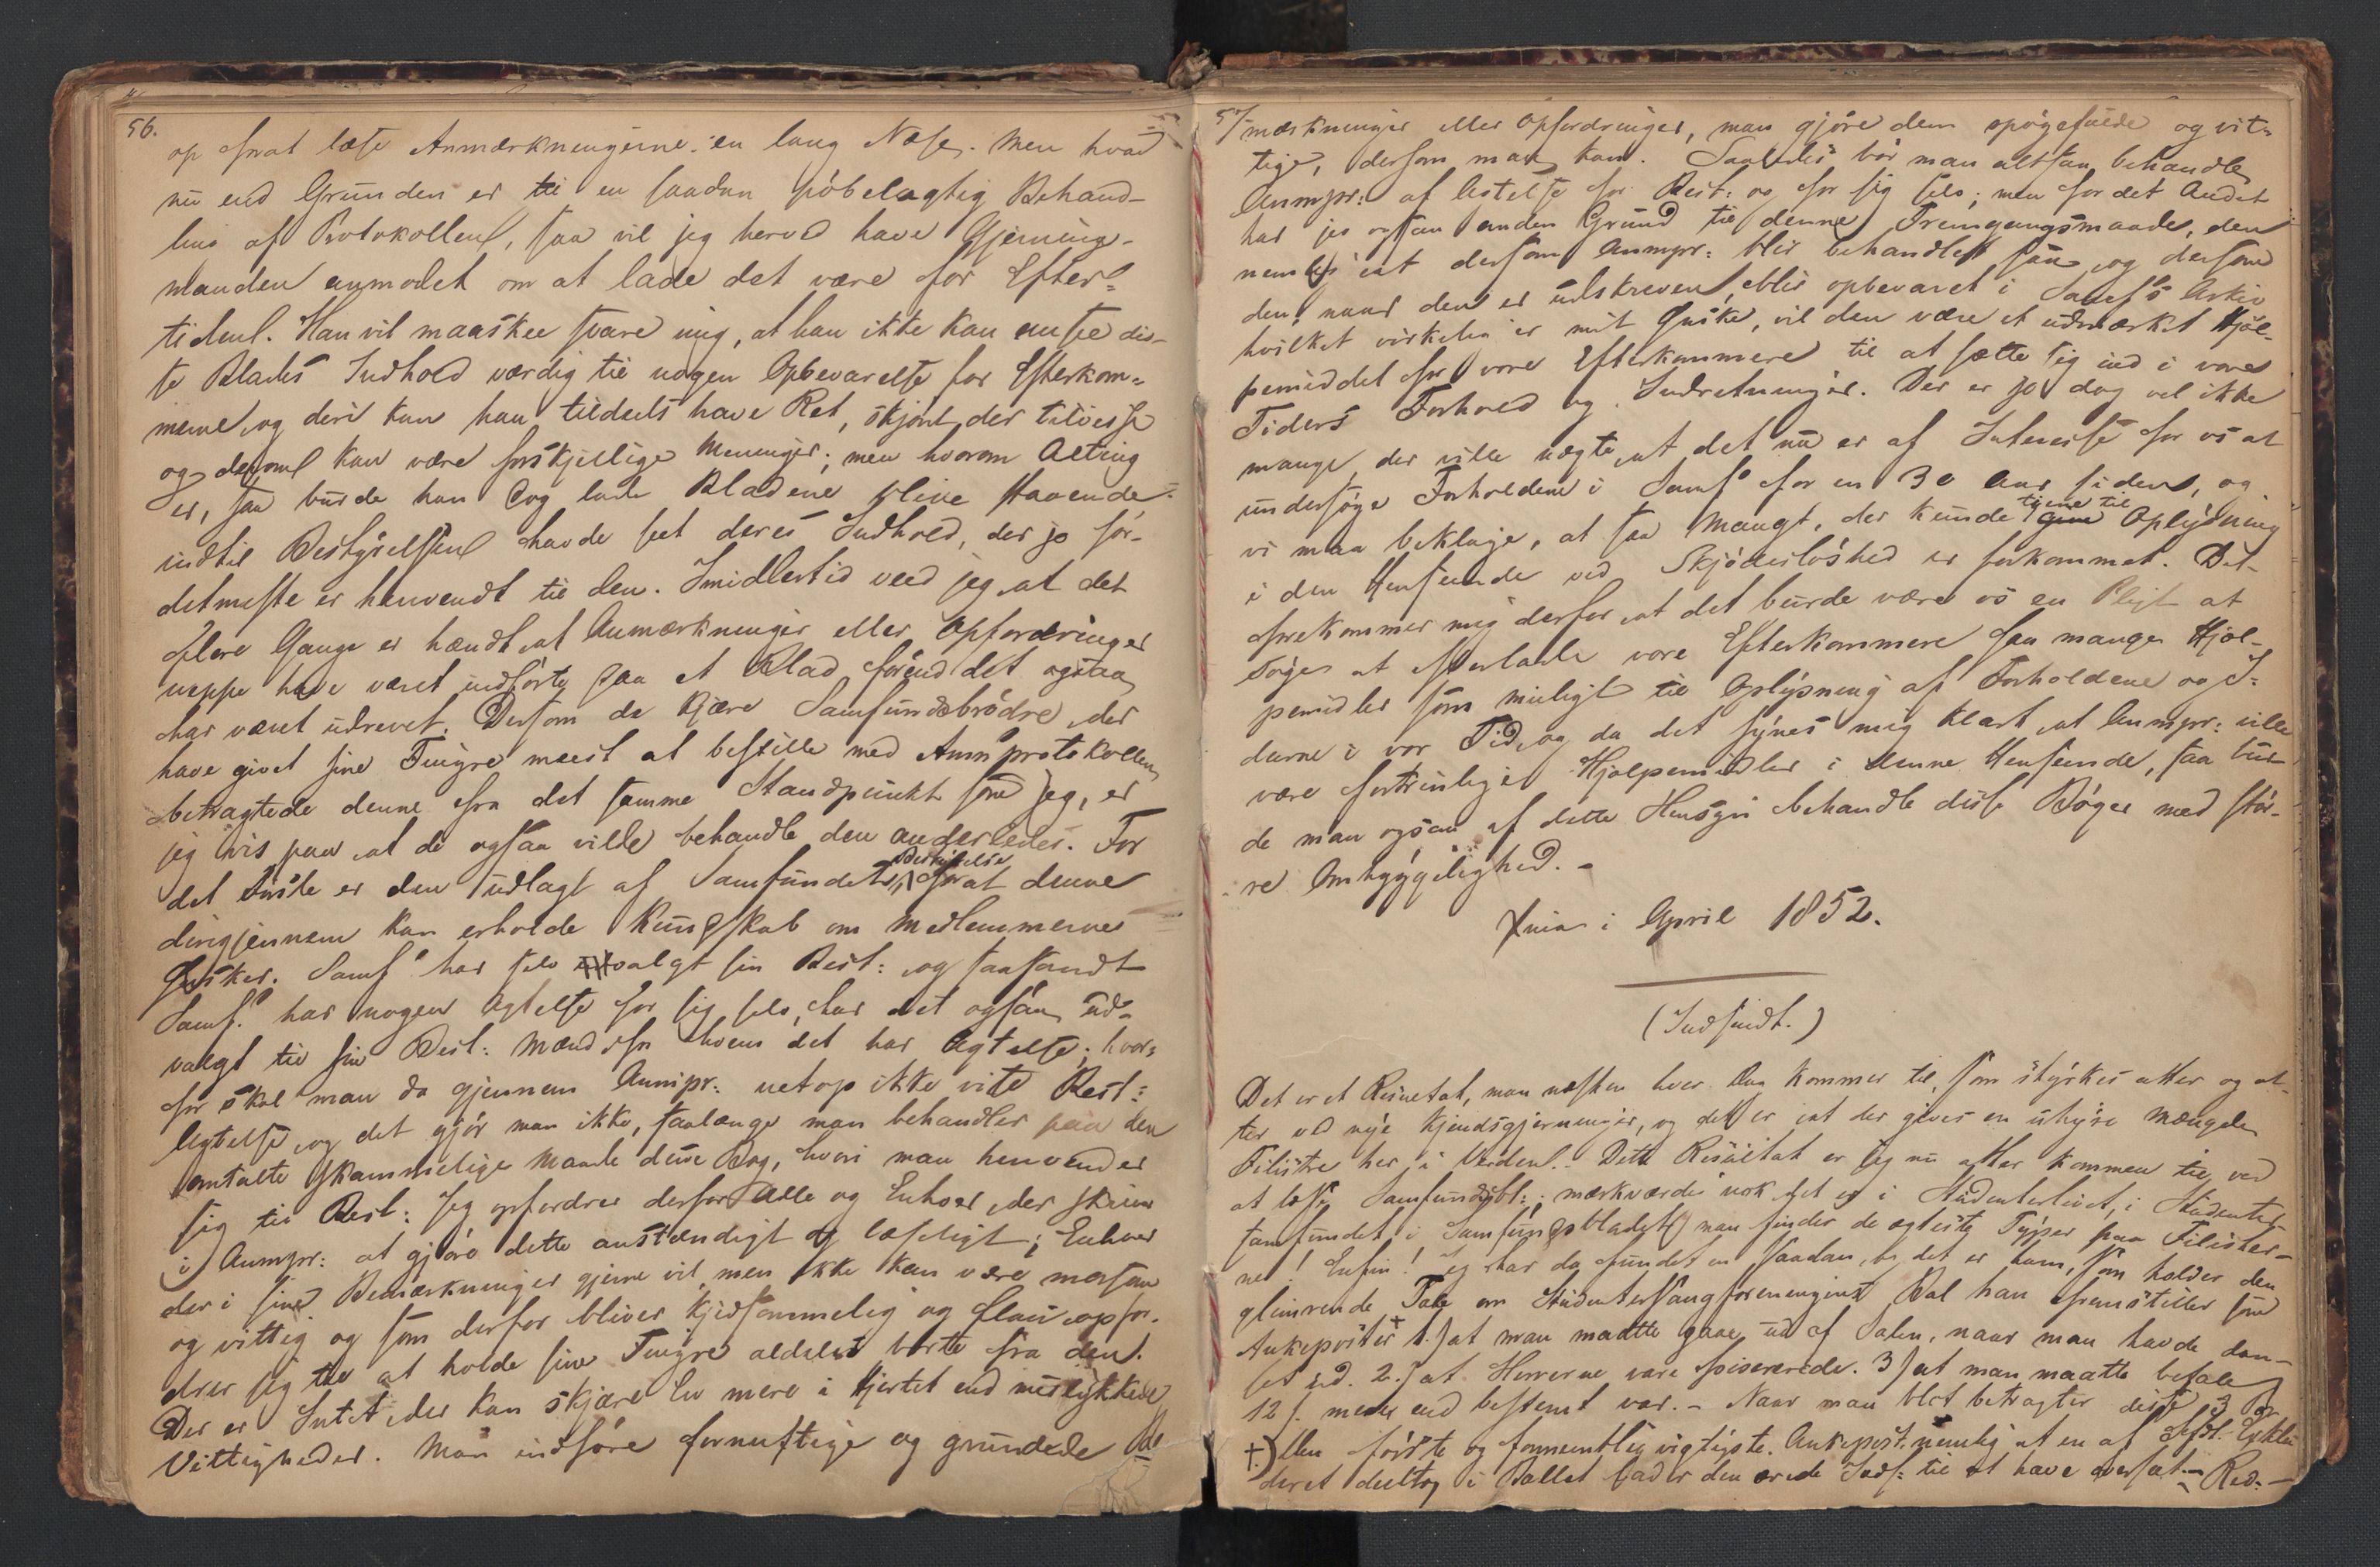 56.
op forat læse Anmærkningerne: en lang Næse. Men hvad
nu end Grunden er til en saadan pöbelagtig Behand-
ling af Protokollen, saa vil jeg herved have Gjernings-
manden anmodet om at lade det være for Efter-
tiden. Han vil maaskee svare mig, at han ikke kan ansee dis-
se Blades Indhold værdig til nogen Opbevarelse for Efterkom-
merne, og deri kan han tildeels have Ret, skjönt der tilvisse
ogsaa derom kan være forskjellige Meninger; men hvorom Alting
er, saa burde han dog lade Bladene blive staaende
indtil Bestyrelsen havde seet deres Indhold, der jo for-
detmeste er henvendt til den. Imidlertid veed jeg, at det
flere Gange er hændt, at Anmærkninger eller Opfordringer
neppe have været indförte paa et Blad förend det ogsaa
har været udrevet. Dersom de kjære Samfundsbrödre, der
have givet sine Fingre meest at bestille med Anmprotokollen
betragtede denne fra det samme Standpunkt som jeg, er
jeg vis paa, at de ogsaa vilde behandle den anderledes. For
det förste er den udlagt af Samfundets Bestyrelse forat denne
derigjennem kan erholde Kundskab om Medlemmernes
Önsker. Samf. har selv valgt sin Best: og saasandt
Samf. har nogen Agtelse for sig selv, har det ogsaa ud-
valgt til sin Best: Mænd, for hvem det har Agtelse; hvor-
for skal man da gjennem Anmpr: netop ikke vise Best:
Agtelse, og det gjör man ikke, saalænge man behandler paa den
omtalte skammelige Maade denne Bog, hvori man henvender
sig til Best: Jeg opfordrer derfor Alle og Enhver, der skriver
i Anmpr: at gjöre dette anstændigt og læseligt; Enhver
der i sine Bemærkninger gjerne vil, men ikke kan være morsom
og vittig og som derfor bliver kjedsommelig og flau, opfor-
drer jeg til at holde sine Fingre aldeles borte fra den.
Der er Intet, der kan skjære En mere i Hjertet end mislykkede
Vittigheder. Man indföre fornuftige og grundede Be-
57
mærkninger eller Opfordringer, man gjöre dem spögefulde og vit-
tige, dersom man kan. Saaledes bör man altsaa behandle
Anmpr: af Agtelse for Best: og for sig selv; men for det Andet
har jeg ogsaa anden Grund til denne Fremgangsmaade, den
nemlig at dersom Anmpr: blir behandlet saa, og dersom
den, naar den er udskreven, blir opbevaret i Samf's Arkiv
hvilket virkelig er mit Önske, vil den være et udmærket Hjæl-
pemiddel for vore Efterkommere til at sætte sig ind i vore
Tiders Forhold og Indretninger. Der er jo dog vel ikke
mange, der ville nægte, at det nu er af Interesse for os at
undersöge Forholdene i Samf. for en 30 Aar siden, og
vi maa beklage, at saa Mangt, der kunde tjene til Oplysning
i den Henseende ved Skjödeslöshed er forkommet. Det
forekommer mig derfor, at det burde være os en Pligt at
söge at efterlade vore Efterkommere saa mange Hjæl-
pemidler som muligt til Oplysning af Forholdene og I-
deerne i vor Tid, og da det synes mig klart, at Anmpr: ville
være fortrinlige Hjælpemidler i denne Henseende, saa bur-
de man ogsaa af dette Hensyn behandle disse Böger med stör-
re Omhyggelighed. -
i April 1852.
(Indsendt.)
Det er et Resultat, man næsten hver Dag kommer til, som styrkes atter og at-
ter ved nye Kjendsgjerninger, og det er, at der gives en uhyre Mængde
Filistre her i Verden. Dette Resultat er jeg nu atter kommen til, ved
at læse Samfundsbl:; mærkværdi nok, det er i Studenterlivet, i Studenter-
samfundet, i Samfundsbladet man finder de ægteste Typer paa Filister-
ne! Enfin! jeg har da fundet en saadan, og det er ham, som holder den
glimrende Tale om Studentersangforeningens Bal han fremstiller som
Ankeposter + 1.) at man maatte gaae ud af Salen, naar man havde dan-
set ud. 2.) at Herrerne vare 3) at man maatte betale
12 s. mere end bestemt var. - Naar man blot betragter disse 3
+.) Den förste og fornemmelig vigtigste Ankepost, nemlig at en af
deltog i Ballet beder den ærede Inds: til at have oversat. - Red: -